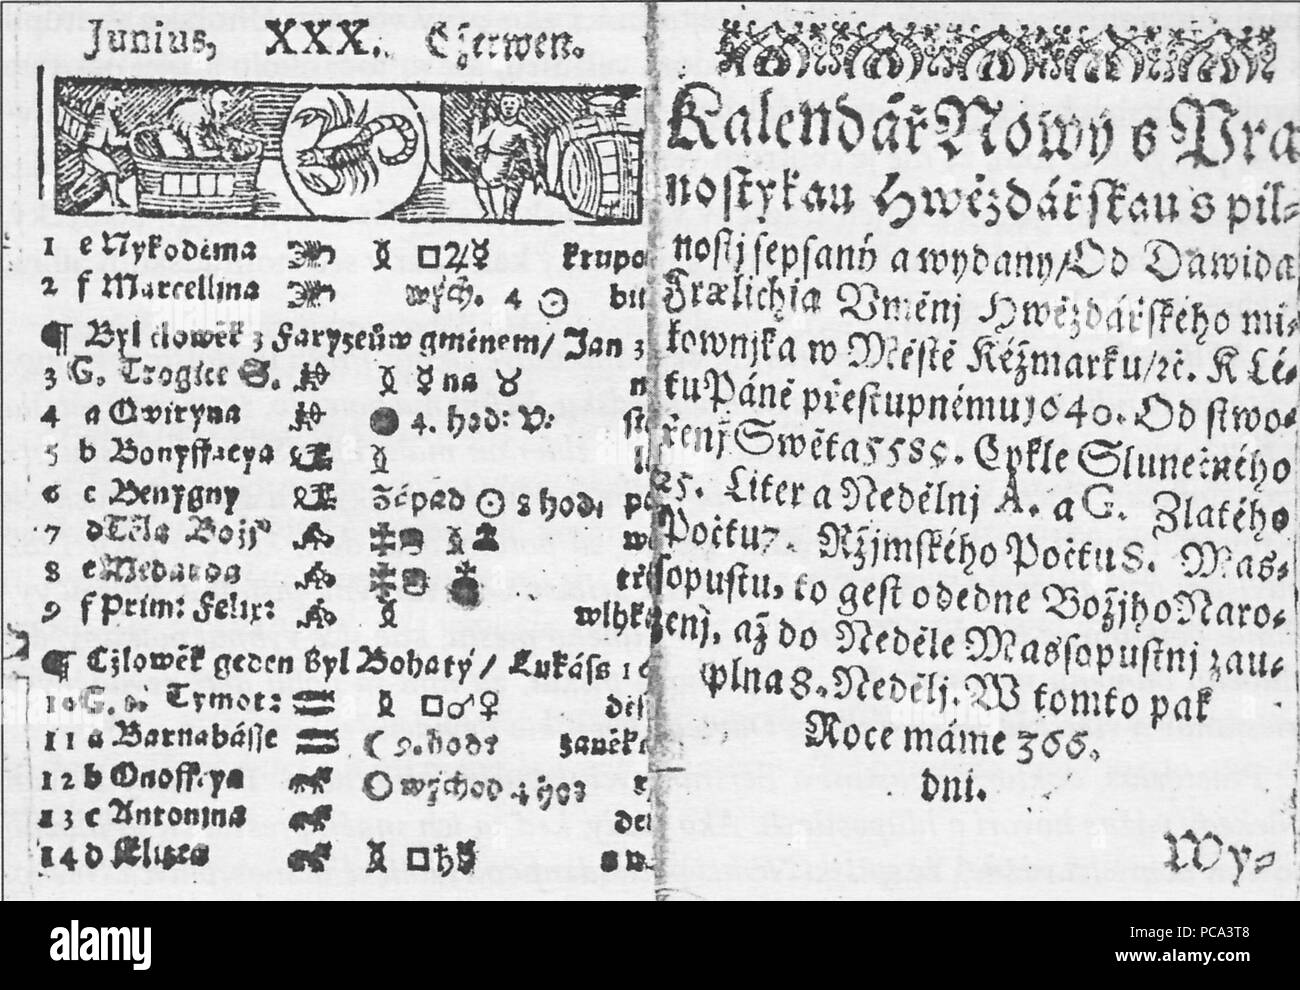 Junius, XXX. Czerwen.
1 e Nykodéma ☿ □♃☿ krupo
2 f Marcellina wých. 4 ☉
¶ Byl clowěk z Faryzeůw gménem/ Jan 3
3 G. Trogice S. ☿ na ♉
4 a Qwiryna 4. hod:
5 b Bonyffacya
6 c Benygny Západ ☉ 8 hod,
7 d Těla Boží
8 e Medarda
9 f Prim: Felix: wlhk
¶ Czlowěk geden byl Bohatý/ Lukáss 16
10 G. Tymot: □♂♀
11 a Barnabásse ☾ 9. hod:
12 b Onoffrya ☉ wychod 4 hod
13 c Antonina
14 d Elizea □♄
Kalendář Nowý s Pra
nostykau Hwězdářskau s pil-
nostj sepsaný a wydany/ Od Dawida
Frœlichia Vměnj Hwězdářského mi-
lownjka w Městě Kéžmarku/ ꝛc. K Lé-
tu Páně přestupnému 1640. Od stwo-
řenj Swěta 5589. Cykle Slunečného
25. Litera Nedělnj A. a G. Zlatého
Počtu 7. Ržjmského Počtu 8. Mas-
opustu, to gest ode dne Božjho Naro-
zenj, až do Neděle Massopustnj zau-
plna 8. Nedělj. W tomto pak
Roce máme 366.
dnj.
Wy-
alamy
alamy
www.alamy.com
Image ID: PCA3T8